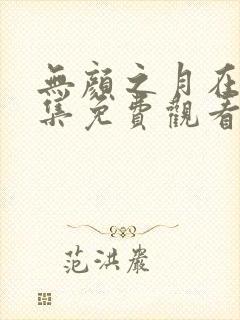 無顏之月在
集免費觀看
范洪嚴